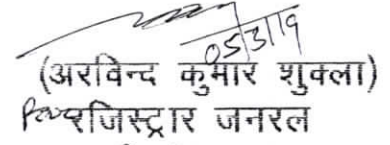 05/3/19
(अरविन्द कुमार शुक्ला)
रजिस्ट्रार जनरल